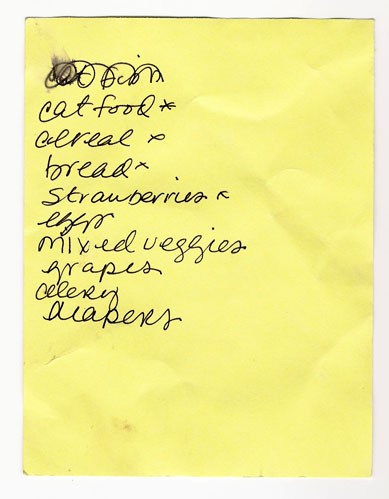 cat food *
cereal x
bread x
Strawberries x
eggs
mixed veggies
grapes
celery
diapers